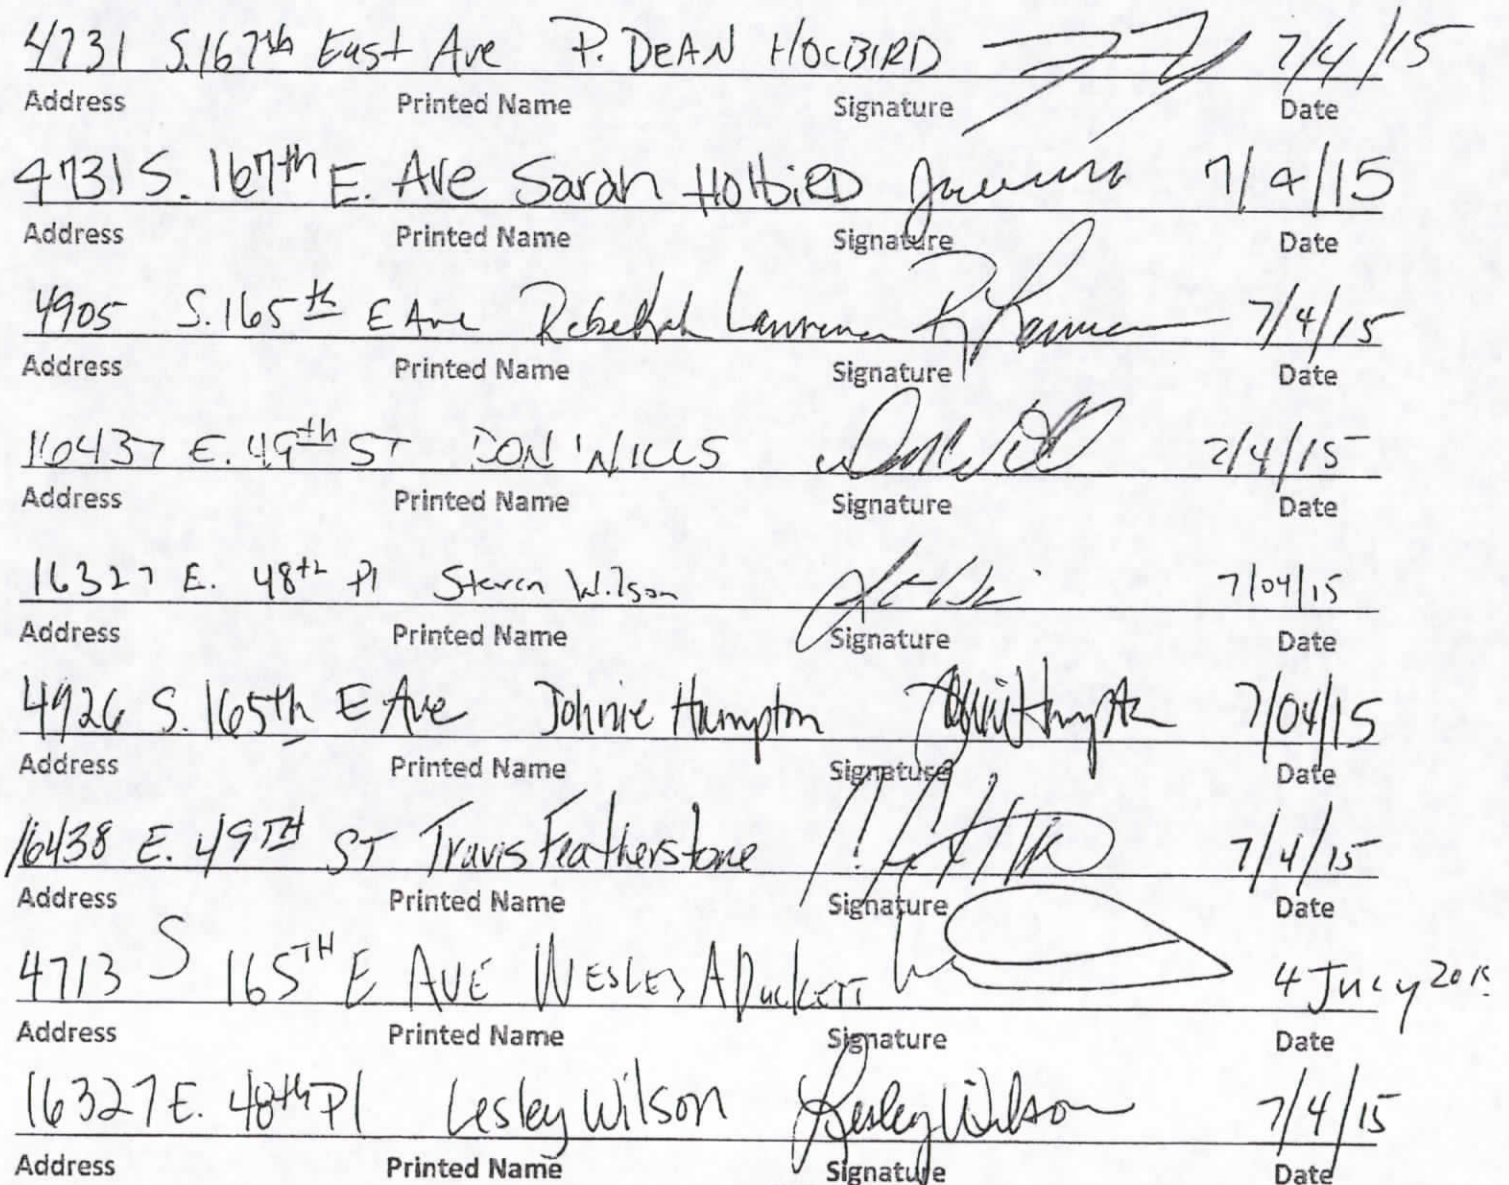 4731 S. 167th East Ave P. DEAN HOLBIRD 7/4/15
Address Printed Name Signature Date
4731 S. 167th E. Ave Sarah HolbiRD 7/4/15
Address Printed Name Signature Date
4905 S. 165th E Ave Rebekah Lawrence 7/4/15
Address Printed Name Signature Date
16437 E. 49th ST DON WILLS 7/4/15
Address Printed Name Signature Date
16327 E. 48th Pl Steven Wilson 7/04/15
Address Printed Name Signature Date
4926 S. 165th E Ave Johnie Hampton Johnie Hampton 7/04/15
Address Printed Name Signature Date
16438 E. 49TH ST Travis Featherstone 7/4/15
Address Printed Name Signature Date
4713 S 165TH E AVE WESLEY A DUCKETT 4 JULY 2015
Address Printed Name Signature Date
16327 E. 48th Pl Lesley Wilson Lesley Wilson 7/4/15
Address Printed Name Signature Date